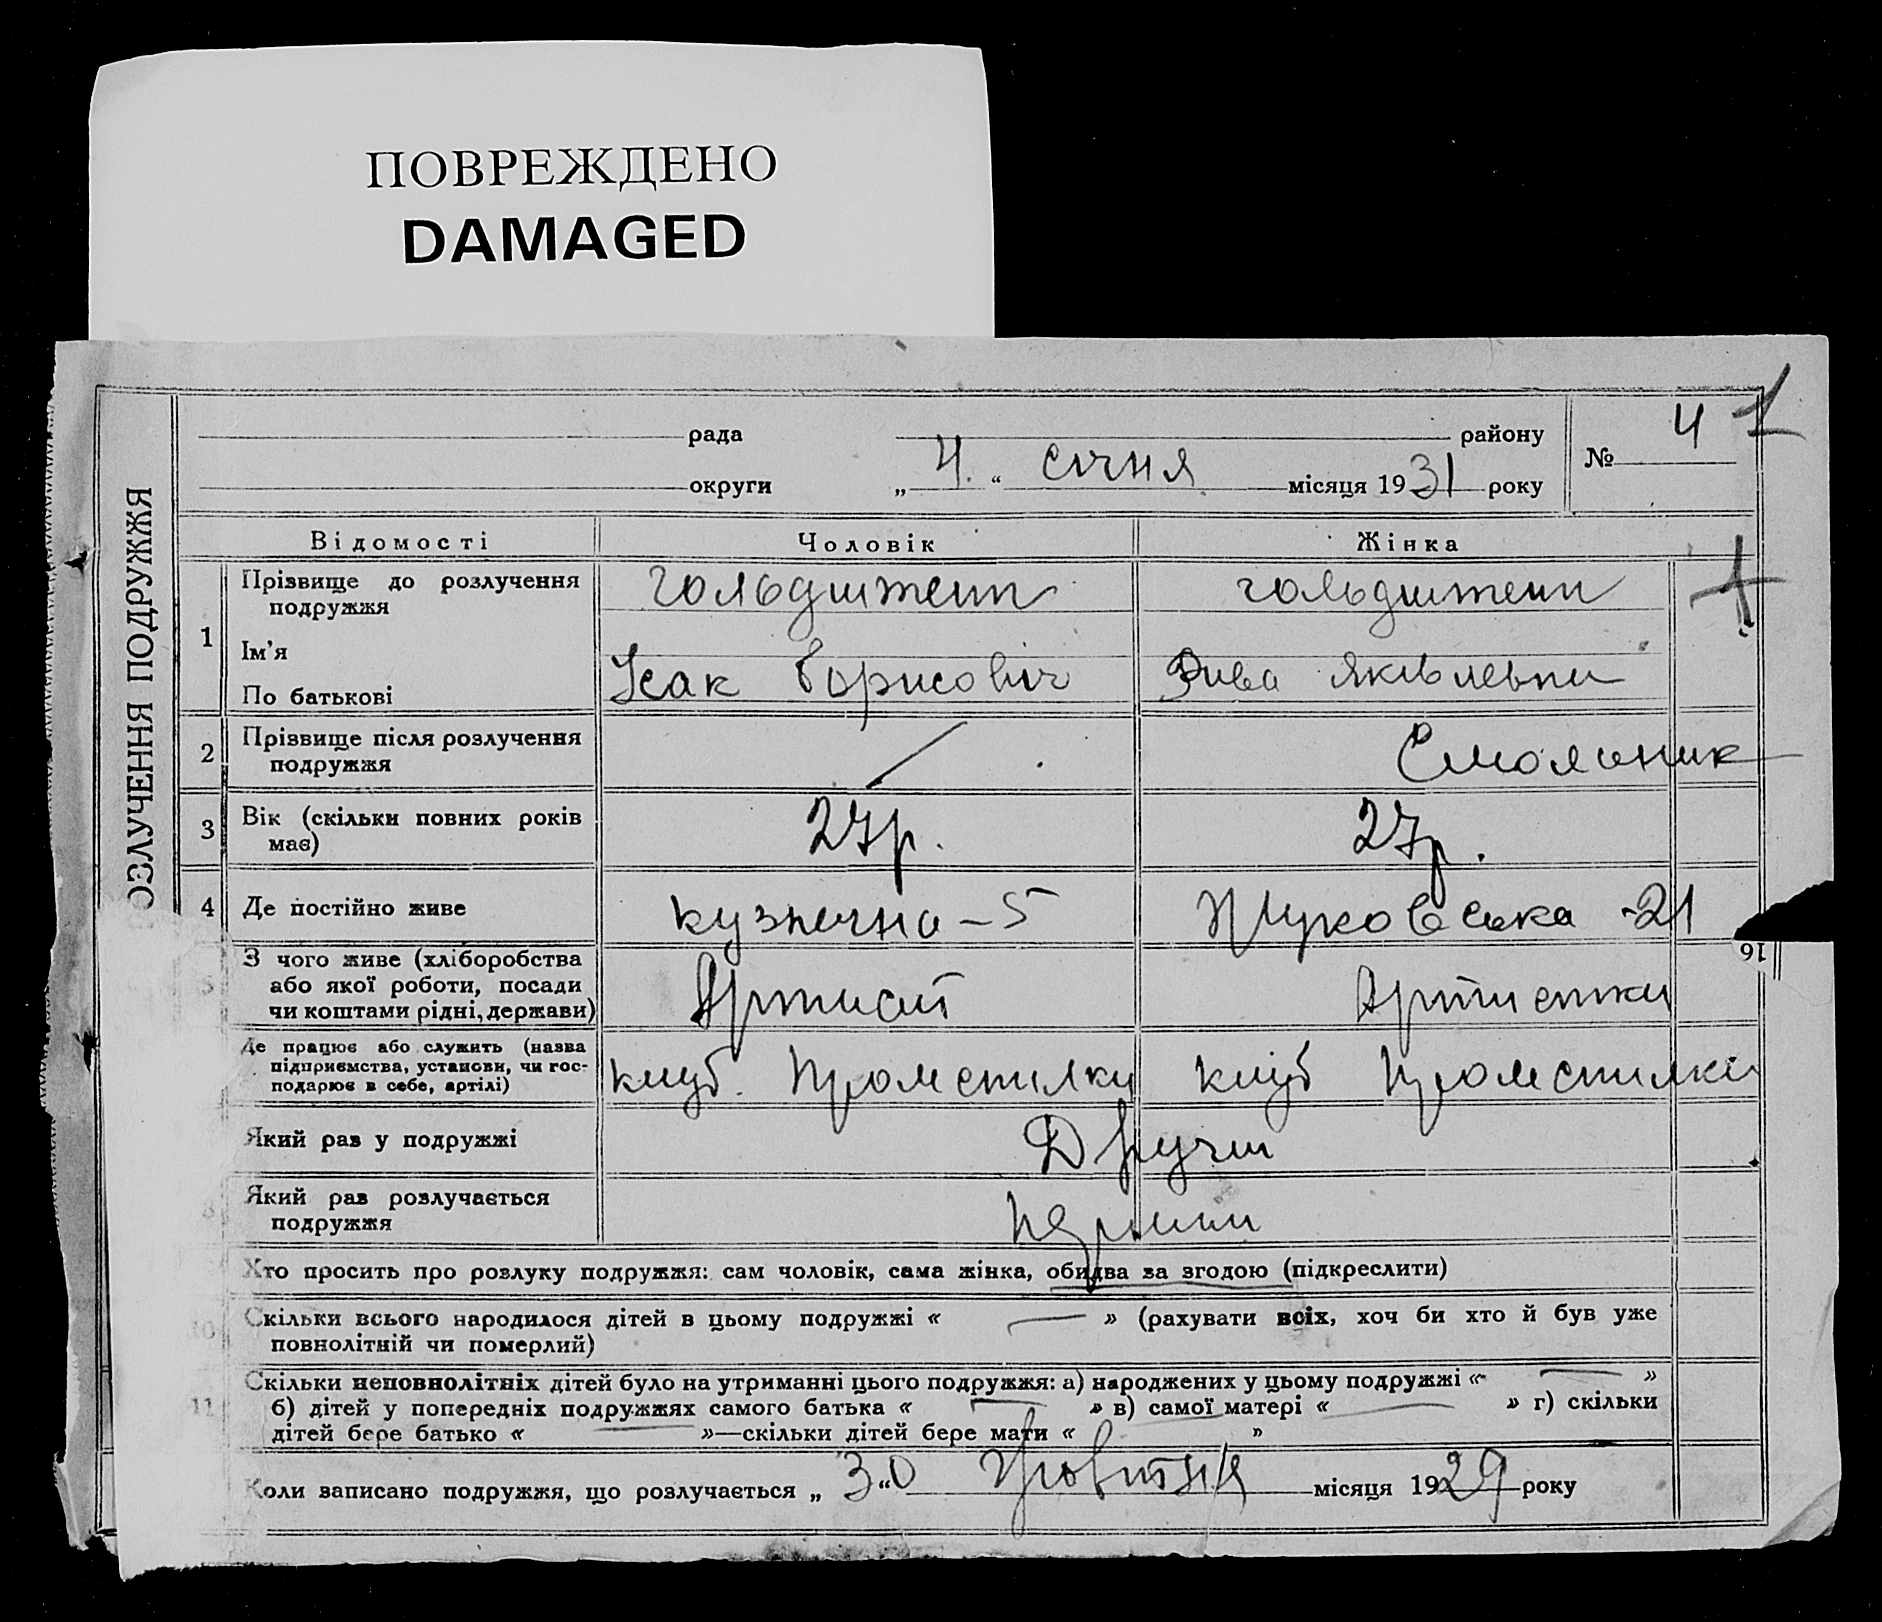 ПОВРЕЖДЕНО
DAMAGED
ОЗЛУЧЕННЯ ПОДРУЖЖЯ
рада района району
округи „ 4. “ січня місяця 1931 року
№ 4
1
Відомості Чоловік Жінка
1
Прізвище до розлучення подружжя
Гольдштейн Гольдштейн
Ім'я
По батькові
Ісак Борисович Рива Яківлевна
2
Прізвище після розлучення
подружжя
Смоляник
3
Вік (скільки повних років
має)
27 р. 27 р.
4
Де постійно живе
Кузнечна – 5 Жуковська - 21
5
З чого живе (хліборобства
або якої роботи, посади
чи коштами рідні, держави)
Артист Артистка
16
Де працює або служить (назва
підприємства, установи, чи гос-
подарює в себе, артілі)
клуб. Промспилки клуб Промспилки
Який раз у подружжі
Другий
8
Який раз розлучається
подружжя
Перший
Хто просить про розлуку подружжя: сам чоловік, сама жінка, обидва за згодою (підкреслити)
10
Скільки всього народилося дітей в цьому подружжі « — » (рахувати всіх, хоч би хто й був уже
повнолітній чи померлий)
11
Скільки неповнолітніх дітей було на утриманні цього подружжя: а) народжених у цьому подружжі « — »
б) дітей у попередніх подружжях самого батька « — » в) самої матері « — » г) скільки
дітей бере батько « — »—скільки дітей бере мати « »
Коли записано подружжя, що розлучається „ 30 “ Жовтня місяця 1929 року